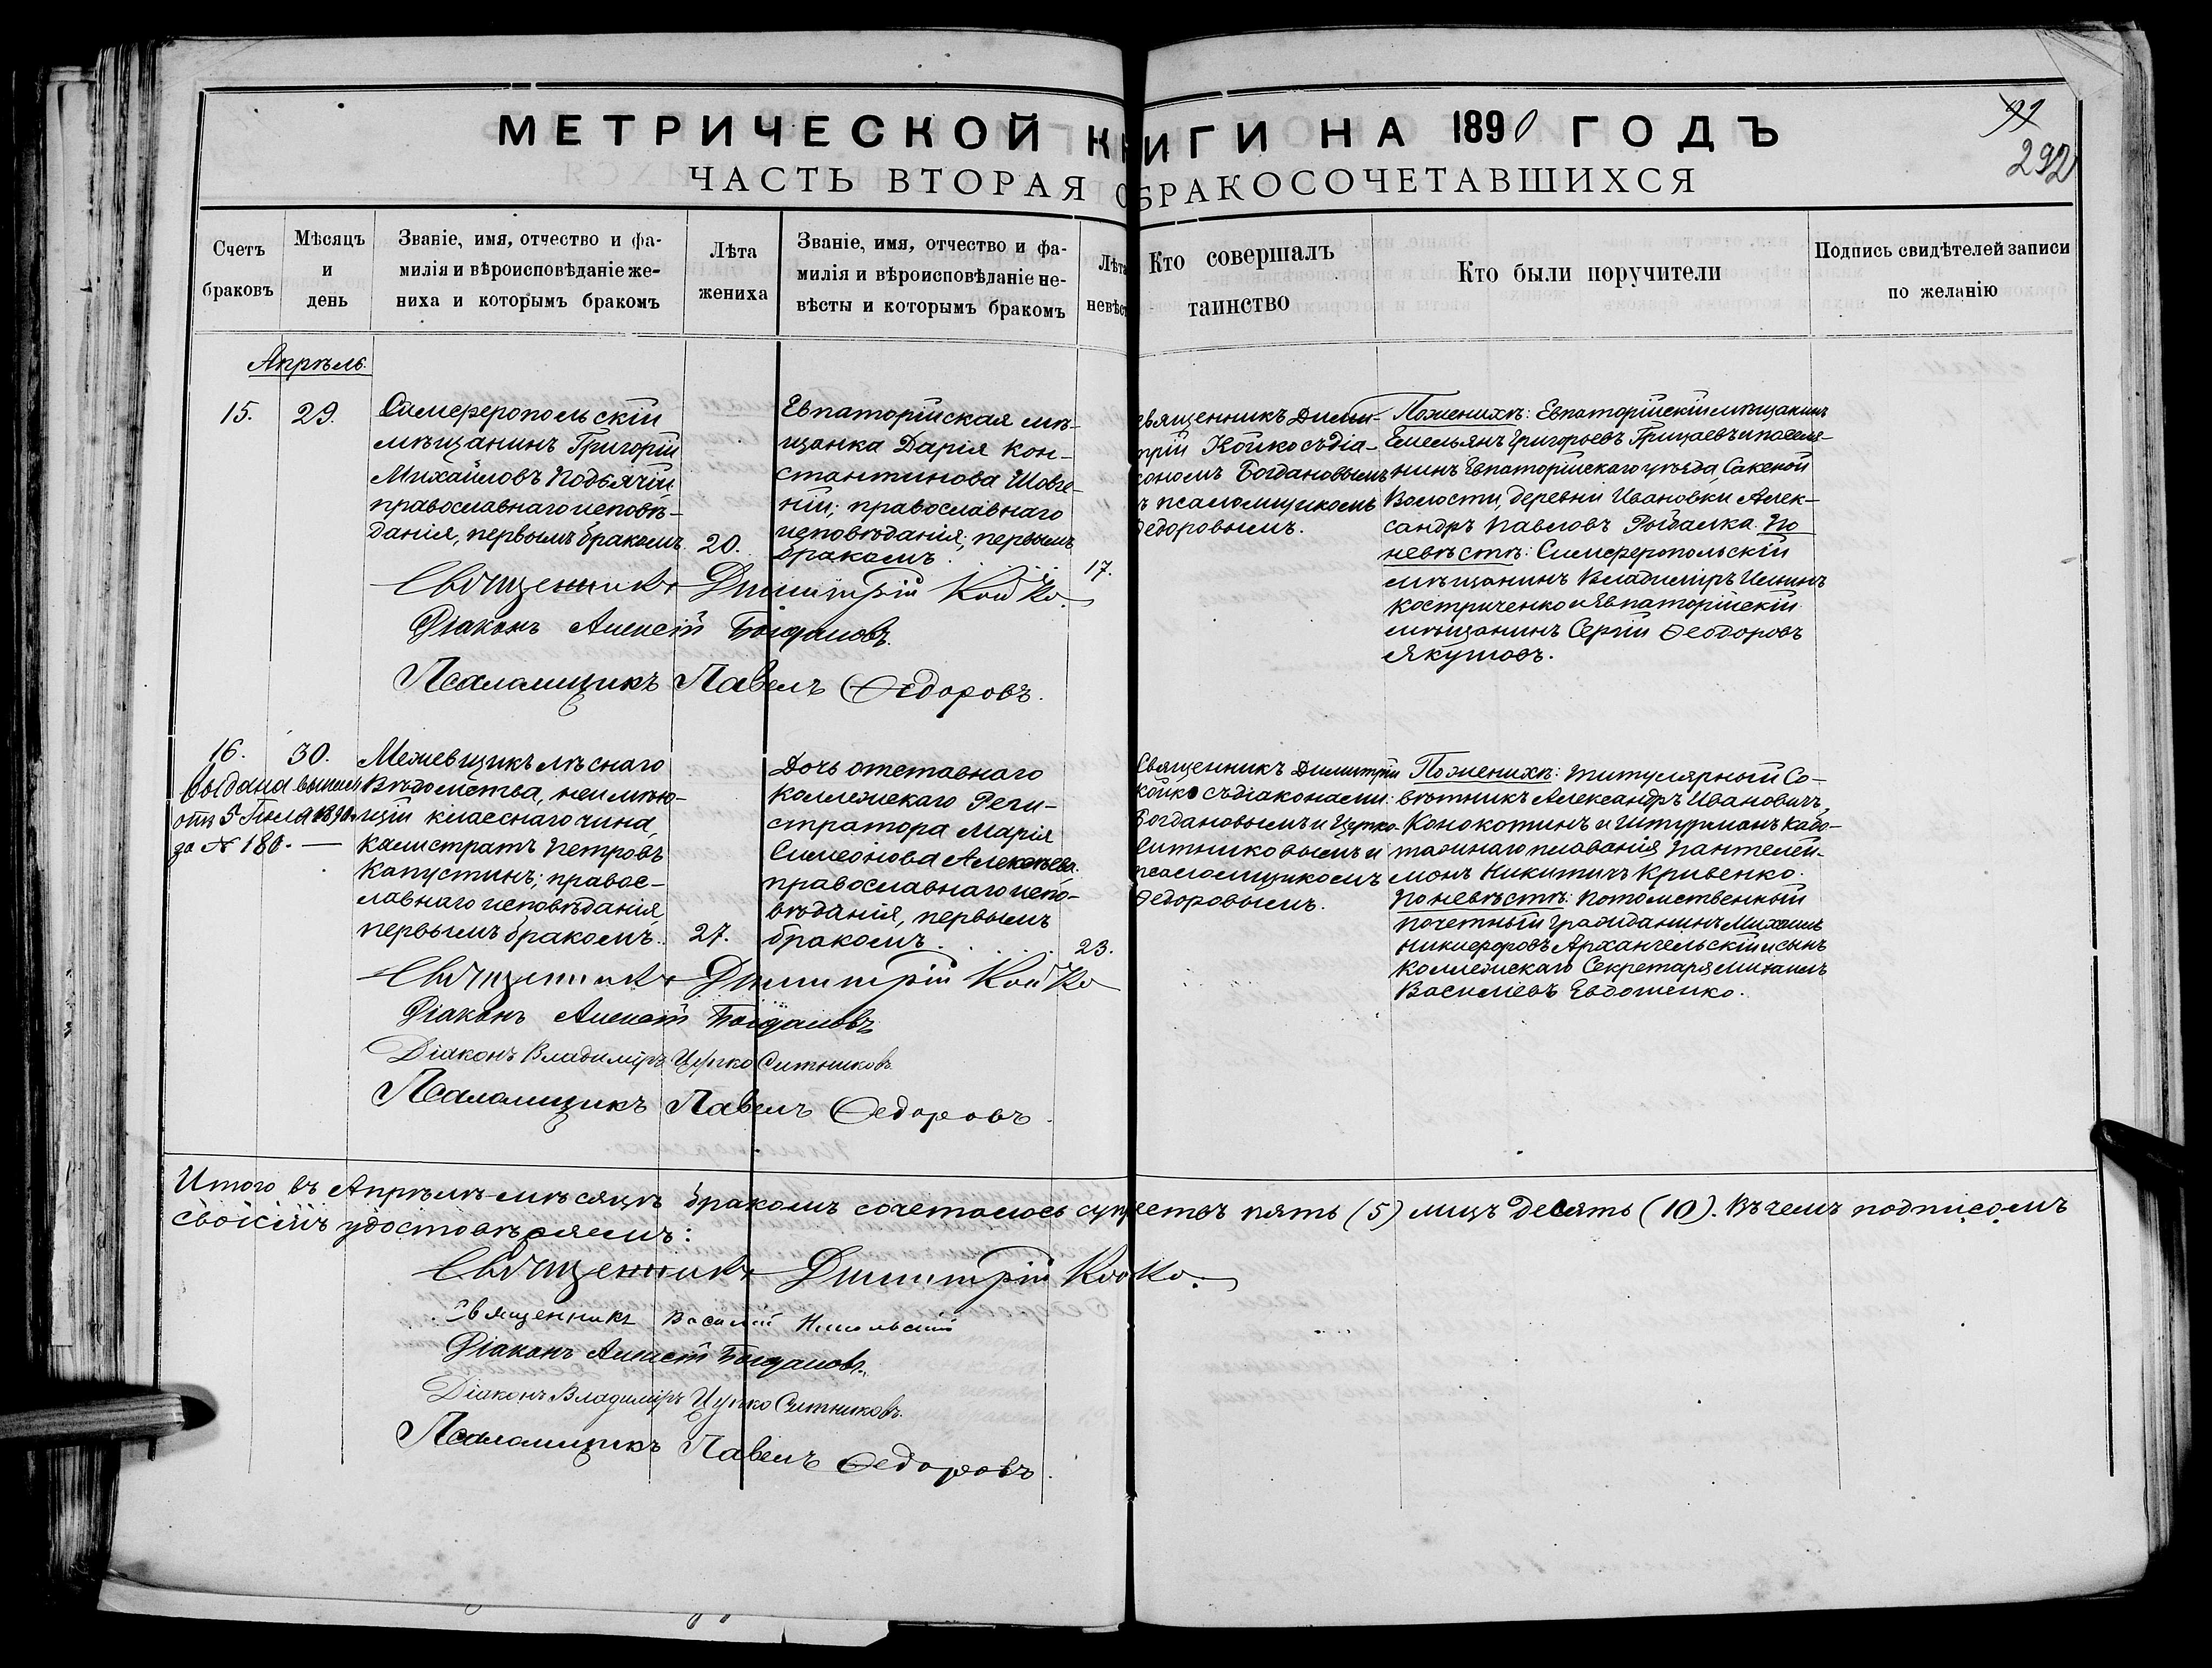 МЕТРИЧЕСКОЙ КНИГИ НА 1890 ГОДЪ
91
292
ЧАСТЬ ВТОРАЯ О БРАКОСОЧЕТАВШИХСЯ
Счетъ
браковъ
Мѣсяцъ
и
день
Званіе, имя, отчество и фа-
милія и вѣроисповѣданіе же-
ниха и которымъ бракомъ
Лѣта
жениха
Званіе, имя, отчество и фа-
милія и вѣроисповѣданіе не-
вѣсты и которымъ бракомъ
Лѣта
невѣст
Кто совершалъ
таинство
Кто были поручители
Подпись свидѣтелей записи
по желанію
Апрѣль.
15.
29.
Симферопольскій
мѣщанинъ Григорій
Михайловъ Подьячій
православнаго исповѣ-
данія, первымъ бракомъ
20.
Евпаторійская мѣ-
щанка Дарія Кон-
стантинова Шовге-
ній; православнаго
исповѣданія, первымъ
бракомъ.
17.
Священникъ Дими-
трій Койко съ діа-
кономъ Богдановымъ
ъ псаломщикомъ
Ѳедоровымъ.
По женихѣ: Евпаторійскій мѣщанинъ
Емельянъ Григорьевъ Грицаевъ и поселя-
нинъ Евпаторійскаго уѣзда, Сакской
Волости, деревни Ивановки Алек-
сандръ Павловъ Рыбалка. По
невѣстѣ: Симферопольскій
мѣщанинъ Владиміръ Ильинъ
Костриченко и Евпаторійскій
мѣщанинъ Сергій Ѳеодоровъ
Якушовъ.
Священникъ Димитрій Койко.
Діаконъ Алексій Богдановъ.
Псаломщикъ Павелъ Ѳедоровъ.
16.
30.
Выдана выпись
отъ 5 Іюля 1890
за № 180. —
Межевщикъ лѣснаго
Вѣдомства, неимѣю-
щій класснаго чина,
Калистратъ Петровъ
Капустинъ; правос-
лавнаго исповѣданія
первымъ бракомъ.
27.
Дочь отставнаго
Коллежскаго Реги-
стратора Марія
Симеонова Алексѣева.
православнаго испо-
вѣданія, первымъ
бракомъ.
23.
Священникъ Димитрій
Койко съ діаконами:
Богдановымъ и Цупко-
Ситниковымъ и
псаломщикомъ
Ѳедоровымъ.
По женихѣ: Титулярный Со-
вѣтникъ Александръ Ивановичъ
Конокотинъ и Штурманъ Кабо-
тажнаго плаванія Пантелей-
монъ Никитичъ Кривенко.
По невѣстѣ: Потомственный
почетный гражданинъ Михаилъ
Никифоровъ Архангельскій и сынъ
Коллежскаго Секретаря Михаилъ
Васильевъ Евдошенко.
Священникъ Димитрій Койко
Діаконъ Алексій Богдановъ
Діаконъ Владиміръ Цупко Ситниковъ
Псаломщикъ Павелъ Ѳедоровъ.
Итого въ Апрѣлѣ мѣсяцѣ бракомъ сочеталось супружествъ пять (5) лицъ десять (10). Въ чемъ подписомъ
своимъ удостовѣряемъ:
Священникъ Димитрій Койко.
Священникъ Василій Никольскій
Діаконъ Алексій Богдановъ.
Діаконъ Владиміръ Цупко Ситниковъ.
Псаломщикъ Павелъ Ѳедоровъ.